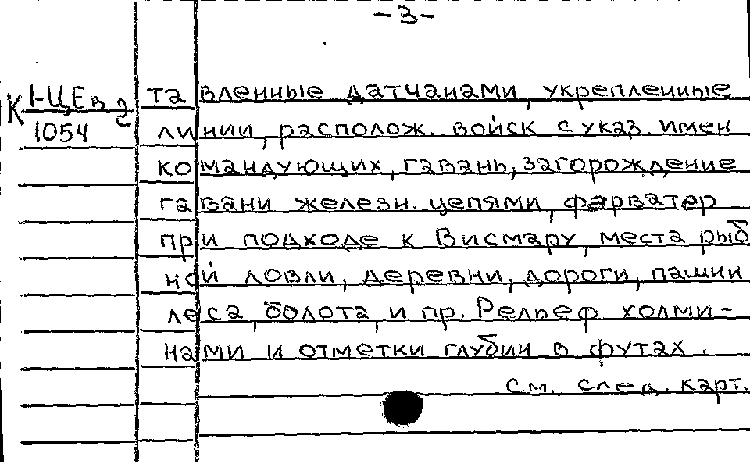 -3-
К 1-ЦЕв 2
1054
тавленные датчанами, укрепленные
линии, располож. войск с указ. имен
командующих, гавань, загорождение
гавани железн. цепями, фарватер
при подходе к Висмару, места рыб
ной ловли, деревни, дороги, пашни
леса, болота, и пр. Рельеф холми-
нами и отметки глубин в футах.
См. след. карт.